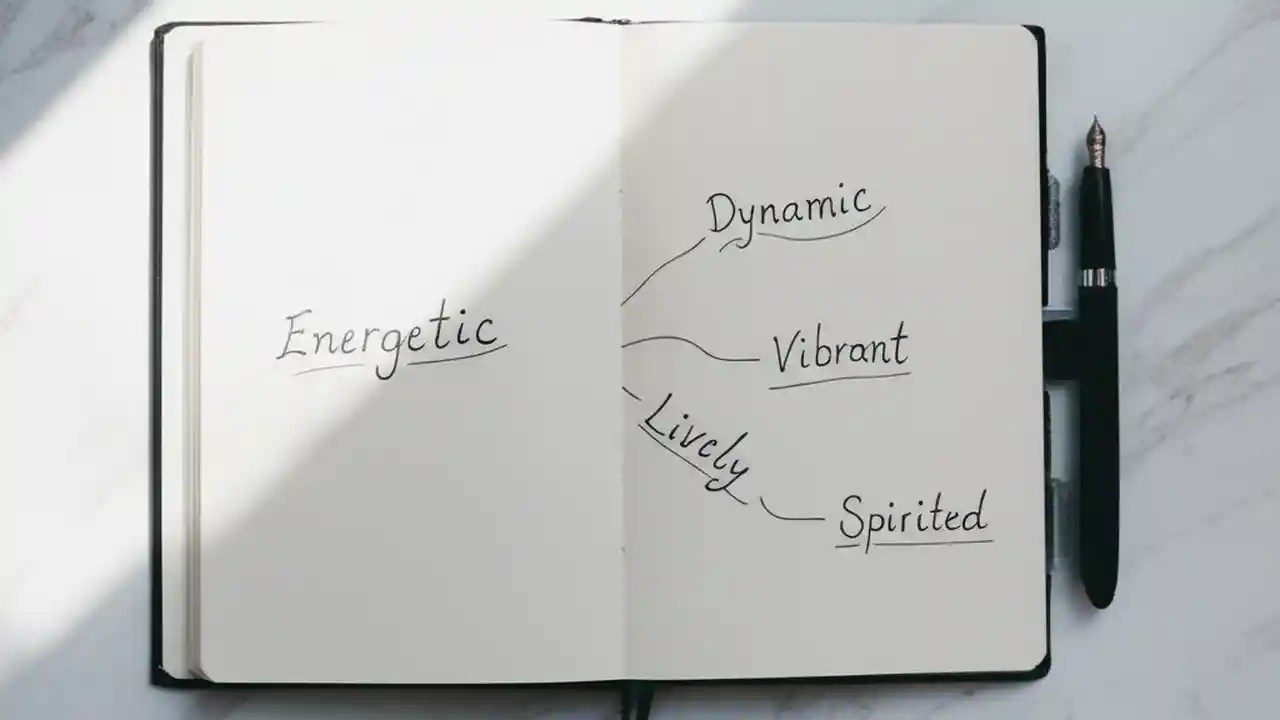 Energetic
Dynamic
Vibrant
Lively
Spirited